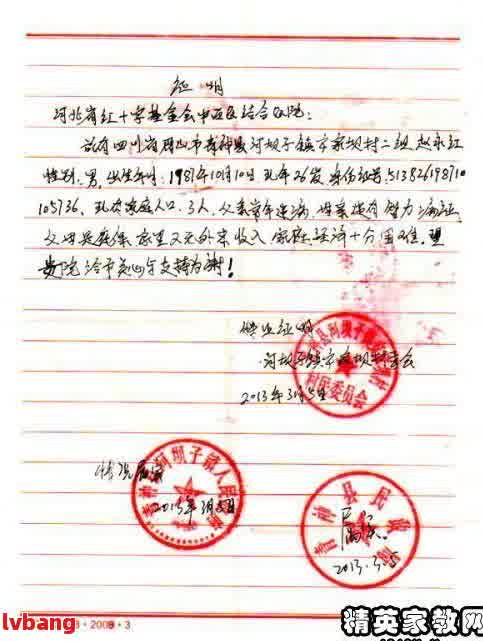 证明
河北省红十字基金会中西医结合医院:
兹有四川省眉山市青神县河坝子镇市家坝村二组赵永红
性别:男,出生年月:1987年10月10 现年26岁 身份证号:513826198710
105736,现有家庭人口:3人,父亲常年 患有智力
父母 家里又无外来收入 家庭经济十分困难,望
贵院给予关心与支持为谢!
特此证明
河坝子镇 村委会
2013年3月5日
村民委员会
情况属实
河坝子镇人民
2013年3月
青神县民政局
属实
2013.3.5
lvbang
2008·3
精英家教网